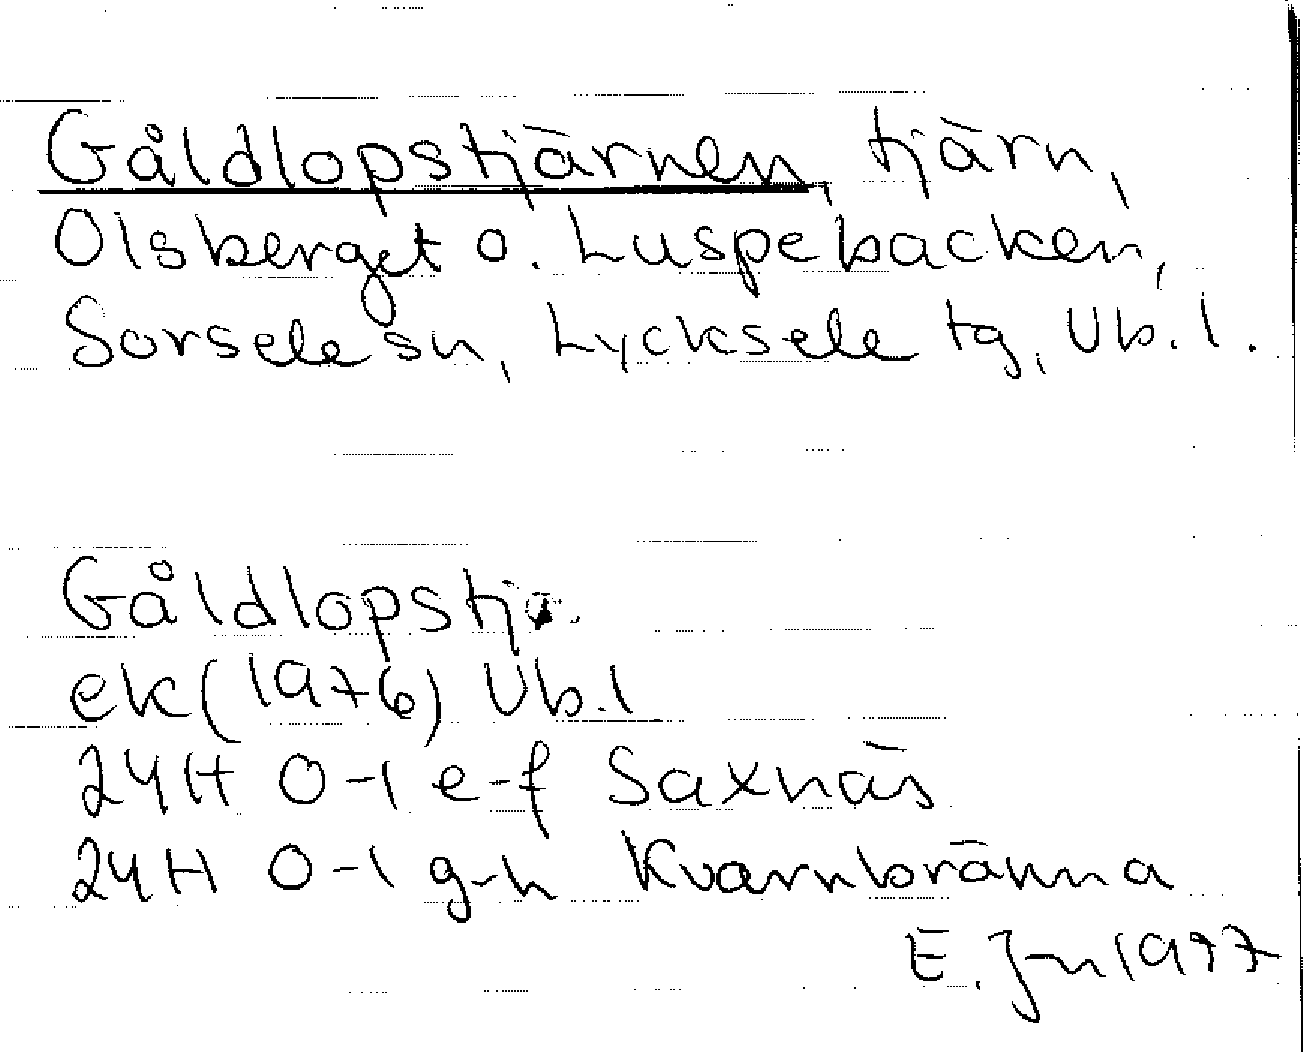 Gåldlopstjärnen, tjärn,
Olsberget o. Luspebacken,
Sorsele sn, Lycksele tg, Vb. l.
Gåldlopstj.
ek (1976) Vb. l
24H 0-1 e-f Saxnäs
24H 0-1 g-h Kvarnbränna
E. Jn 1997